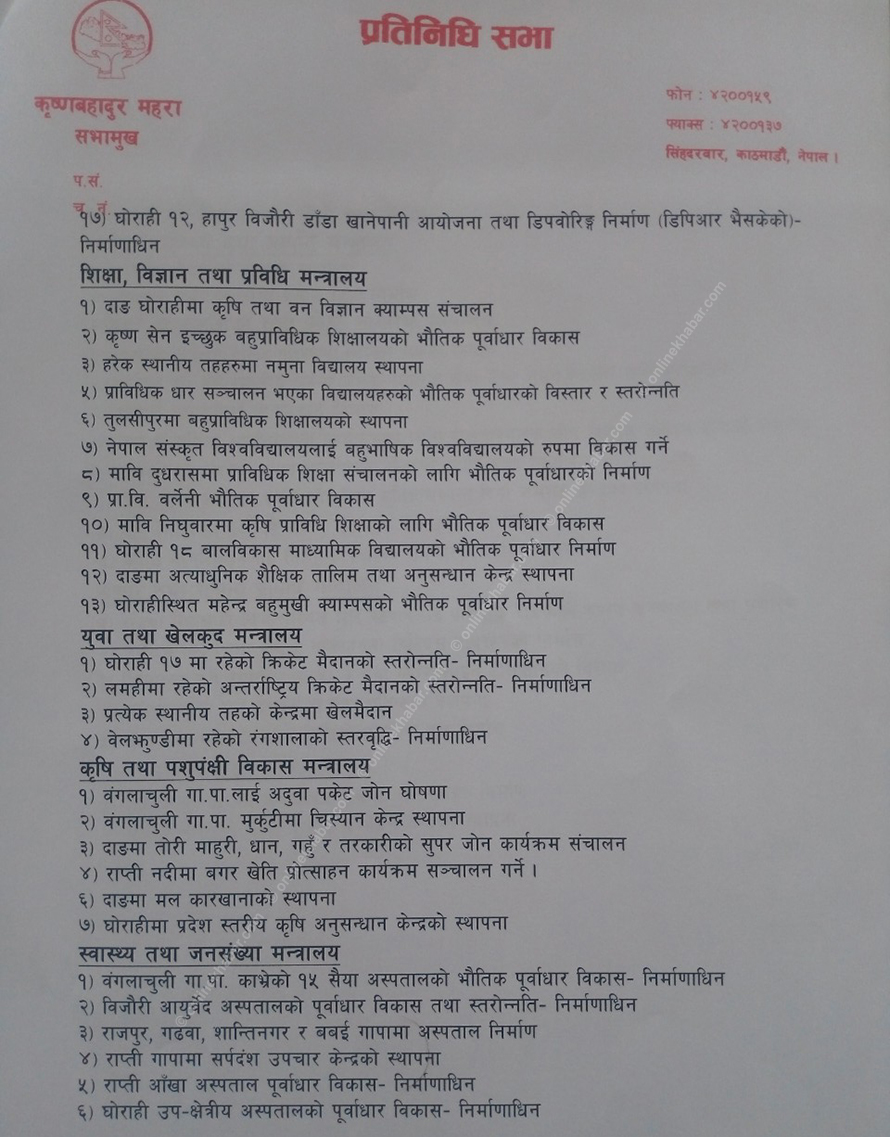 प्रतिनिधि सभा
कृष्णबहादुर महरा
सभामुख
फोन : ४२००१५९
फ्याक्स : ४२००१३७
सिंहदरबार, काठमाडौं, नेपाल ।
प.सं.
च.नं.
१७) घोराही १२, हापुर विजौरी डाँडा खानेपानी आयोजना तथा डिपवोरिङ्ग निर्माण (डिपिआर भैसकेको)-
निर्माणाधिन
शिक्षा, विज्ञान तथा प्रविधि मन्त्रालय
१) दाङ घोराहीमा कृषि तथा वन विज्ञान क्याम्पस संचालन
२) कृष्ण सेन इच्छुक बहुप्राविधिक शिक्षालयको भौतिक पूर्वाधार विकास
३) हरेक स्थानीय तहहरुमा नमुना विद्यालय स्थापना
५) प्राविधिक धार सञ्चालन भएका विद्यालयहरुको भौतिक पूर्वाधारको विस्तार र स्तरोन्नति
६) तुलसीपुरमा बहुप्राविधिक शिक्षालयको स्थापना
७) नेपाल संस्कृत विश्वविद्यालयलाई बहुभाषिक विश्वविद्यालयको रुपमा विकास गर्ने
८) मावि दुधरासमा प्राविधिक शिक्षा संचालनको लागि भौतिक पूर्वाधारको निर्माण
९) प्रा.वि. वर्लेनी भौतिक पूर्वाधार विकास
१०) मावि निघुवारमा कृषि प्राविधि शिक्षाको लागि भौतिक पूर्वाधार विकास
११) घोराही १८ बालविकास माध्यामिक विद्यालयको भौतिक पूर्वाधार निर्माण
१२) दाङमा अत्याधुनिक शैक्षिक तालिम तथा अनुसन्धान केन्द्र स्थापना
१३) घोराहीस्थित महेन्द्र बहुमुखी क्याम्पसको भौतिक पूर्वाधार निर्माण
युवा तथा खेलकुद मन्त्रालय
१) घोराही १७ मा रहेको क्रिकेट मैदानको स्तरोन्नति- निर्माणाधिन
२) लमहीमा रहेको अन्तर्राष्ट्रिय क्रिकेट मैदानको स्तरोन्नति- निर्माणाधिन
३) प्रत्येक स्थानीय तहको केन्द्रमा खेलमैदान
४) वेलझुण्डीमा रहेको रंगशालाको स्तरवृद्धि- निर्माणाधिन
कृषि तथा पशुपंक्षी विकास मन्त्रालय
१) वंगलाचुली गा.पा.लाई अदुवा पकेट जोन घोषणा
२) वंगलाचुली गा.पा. मुर्कुटीमा चिस्यान केन्द्र स्थापना
३) दाङमा तोरी माहुरी, धान, गहुँ र तरकारीको सुपर जोन कार्यक्रम संचालन
४) राप्ती नदीमा बगर खेति प्रोत्साहन कार्यक्रम सञ्चालन गर्ने ।
६) दाङमा मल कारखानाको स्थापना
७) घोराहीमा प्रदेश स्तरीय कृषि अनुसन्धान केन्द्रको स्थापना
स्वास्थ्य तथा जनसंख्या मन्त्रालय
१) वंगलाचुली गा.पा. काभ्रेको १५ सैया अस्पतालको भौतिक पूर्वाधार विकास- निर्माणाधिन
२) विजौरी आयुर्वेद अस्पतालको पूर्वाधार विकास तथा स्तरोन्नति- निर्माणाधिन
३) राजपुर, गढवा, शान्तिनगर र बबई गापामा अस्पताल निर्माण
४) राप्ती गापामा सर्पदंश उपचार केन्द्रको स्थापना
५) राप्ती आँखा अस्पताल पूर्वाधार विकास- निर्माणाधिन
६) घोराही उप-क्षेत्रीय अस्पतालको पूर्वाधार विकास- निर्माणाधिन
© onlinekhabar.com © onlinekhabar.com © onlinekhabar.com © onlinekhabar.com © onlinekhabar.com